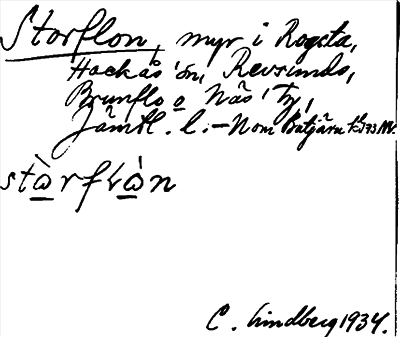 Storflon, myr i Rogsta,
Hackås sn, Revsunds,
Brunflo o Näs' tg,
Jämtl. l. – Nom
stàrflòn
C. Lindberg 1934.